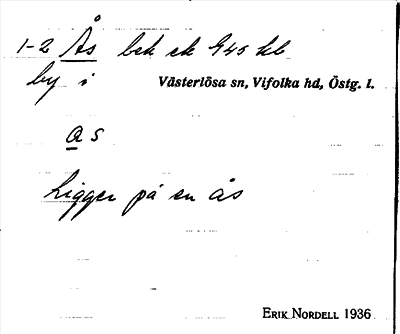 1-2 Ås bek ek 945 kb
by i Västerlösa sn, Vifolka hd, Östg. l.
as
Ligger på en ås
ERIK NORDELL 1936